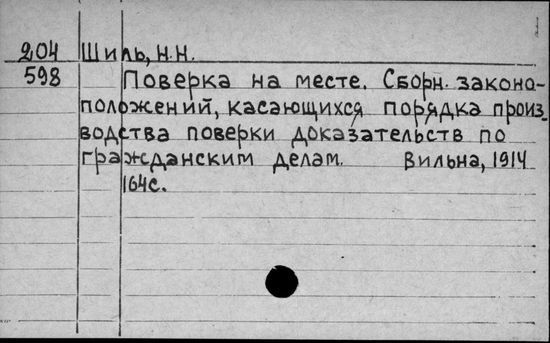 204 Шиль, Н.Н.
598 Поверка на месте. Сборн. законо-
положений, касающихся порядка произ-
водства поверки доказательств по
гражданским делам. Вильна, 1914
164с.